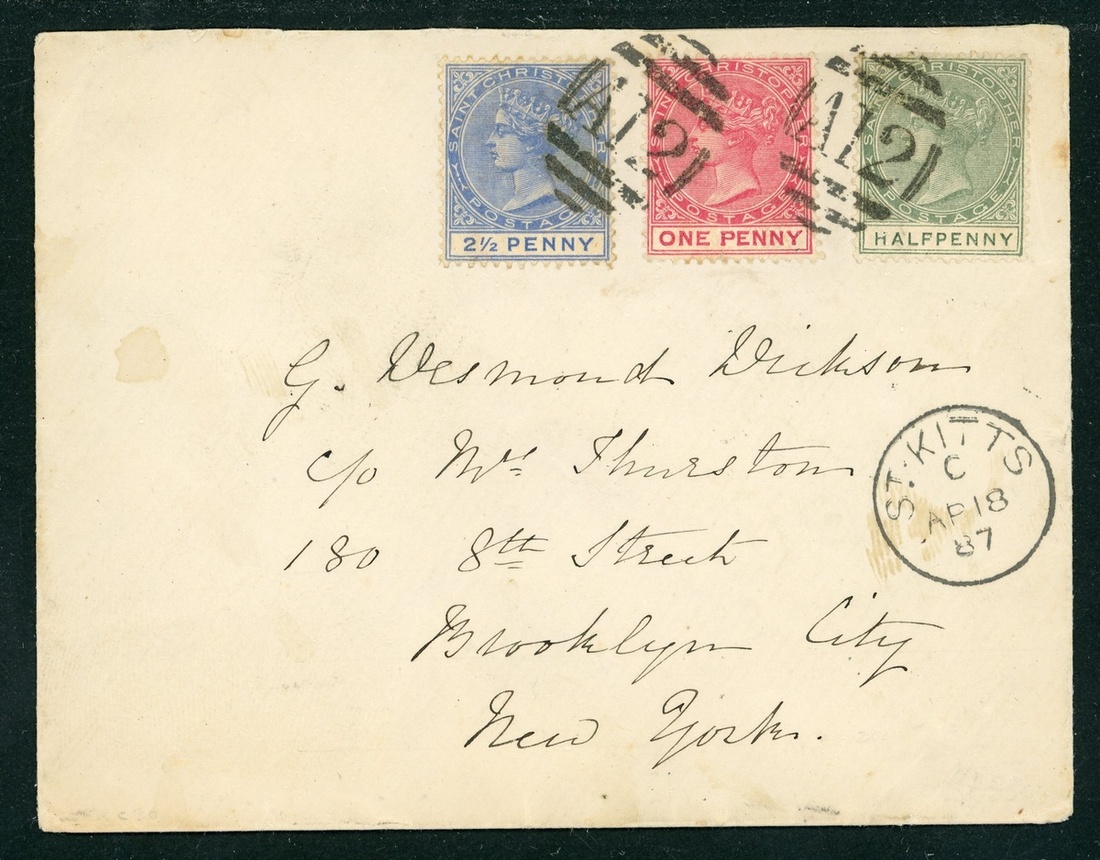 SAINT CHRISTOPHER
POSTAGE
2½ PENNY
SAINT CHRISTOPHER
POSTAGE
ONE PENNY
SAINT CHRISTOPHER
POSTAGE
HALFPENNY
A12
A12
G. Desmond Dickson
c/o Mrs Thurston
180 8th Street
Brooklyn City
New York.
ST. KITTS
C
AP 18
87